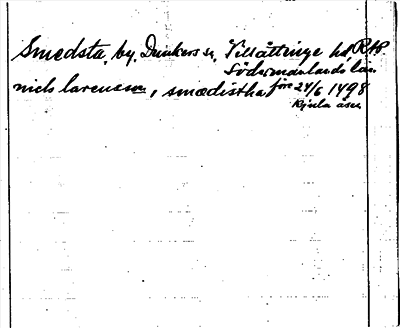 Smedsta, by, Dunkers sn, Villåttinge hd,
Södermanlands län
nicls larensson, smædistha före 24/6 1498